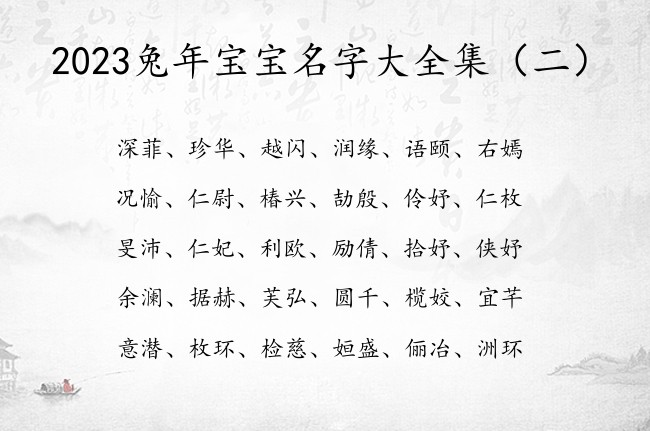 2023兔年宝宝名字大全集（二）
深菲、珍华、越闪、润缘、语颐、右嫣
况愉、仁尉、椿兴、劼殷、伶妤、仁枚
旻沛、仁妃、利欧、励倩、拾妤、侠妤
余澜、据赫、芙弘、圆千、榄姣、宜芊
意潜、枚环、检慈、姮盛、俪冶、洲环